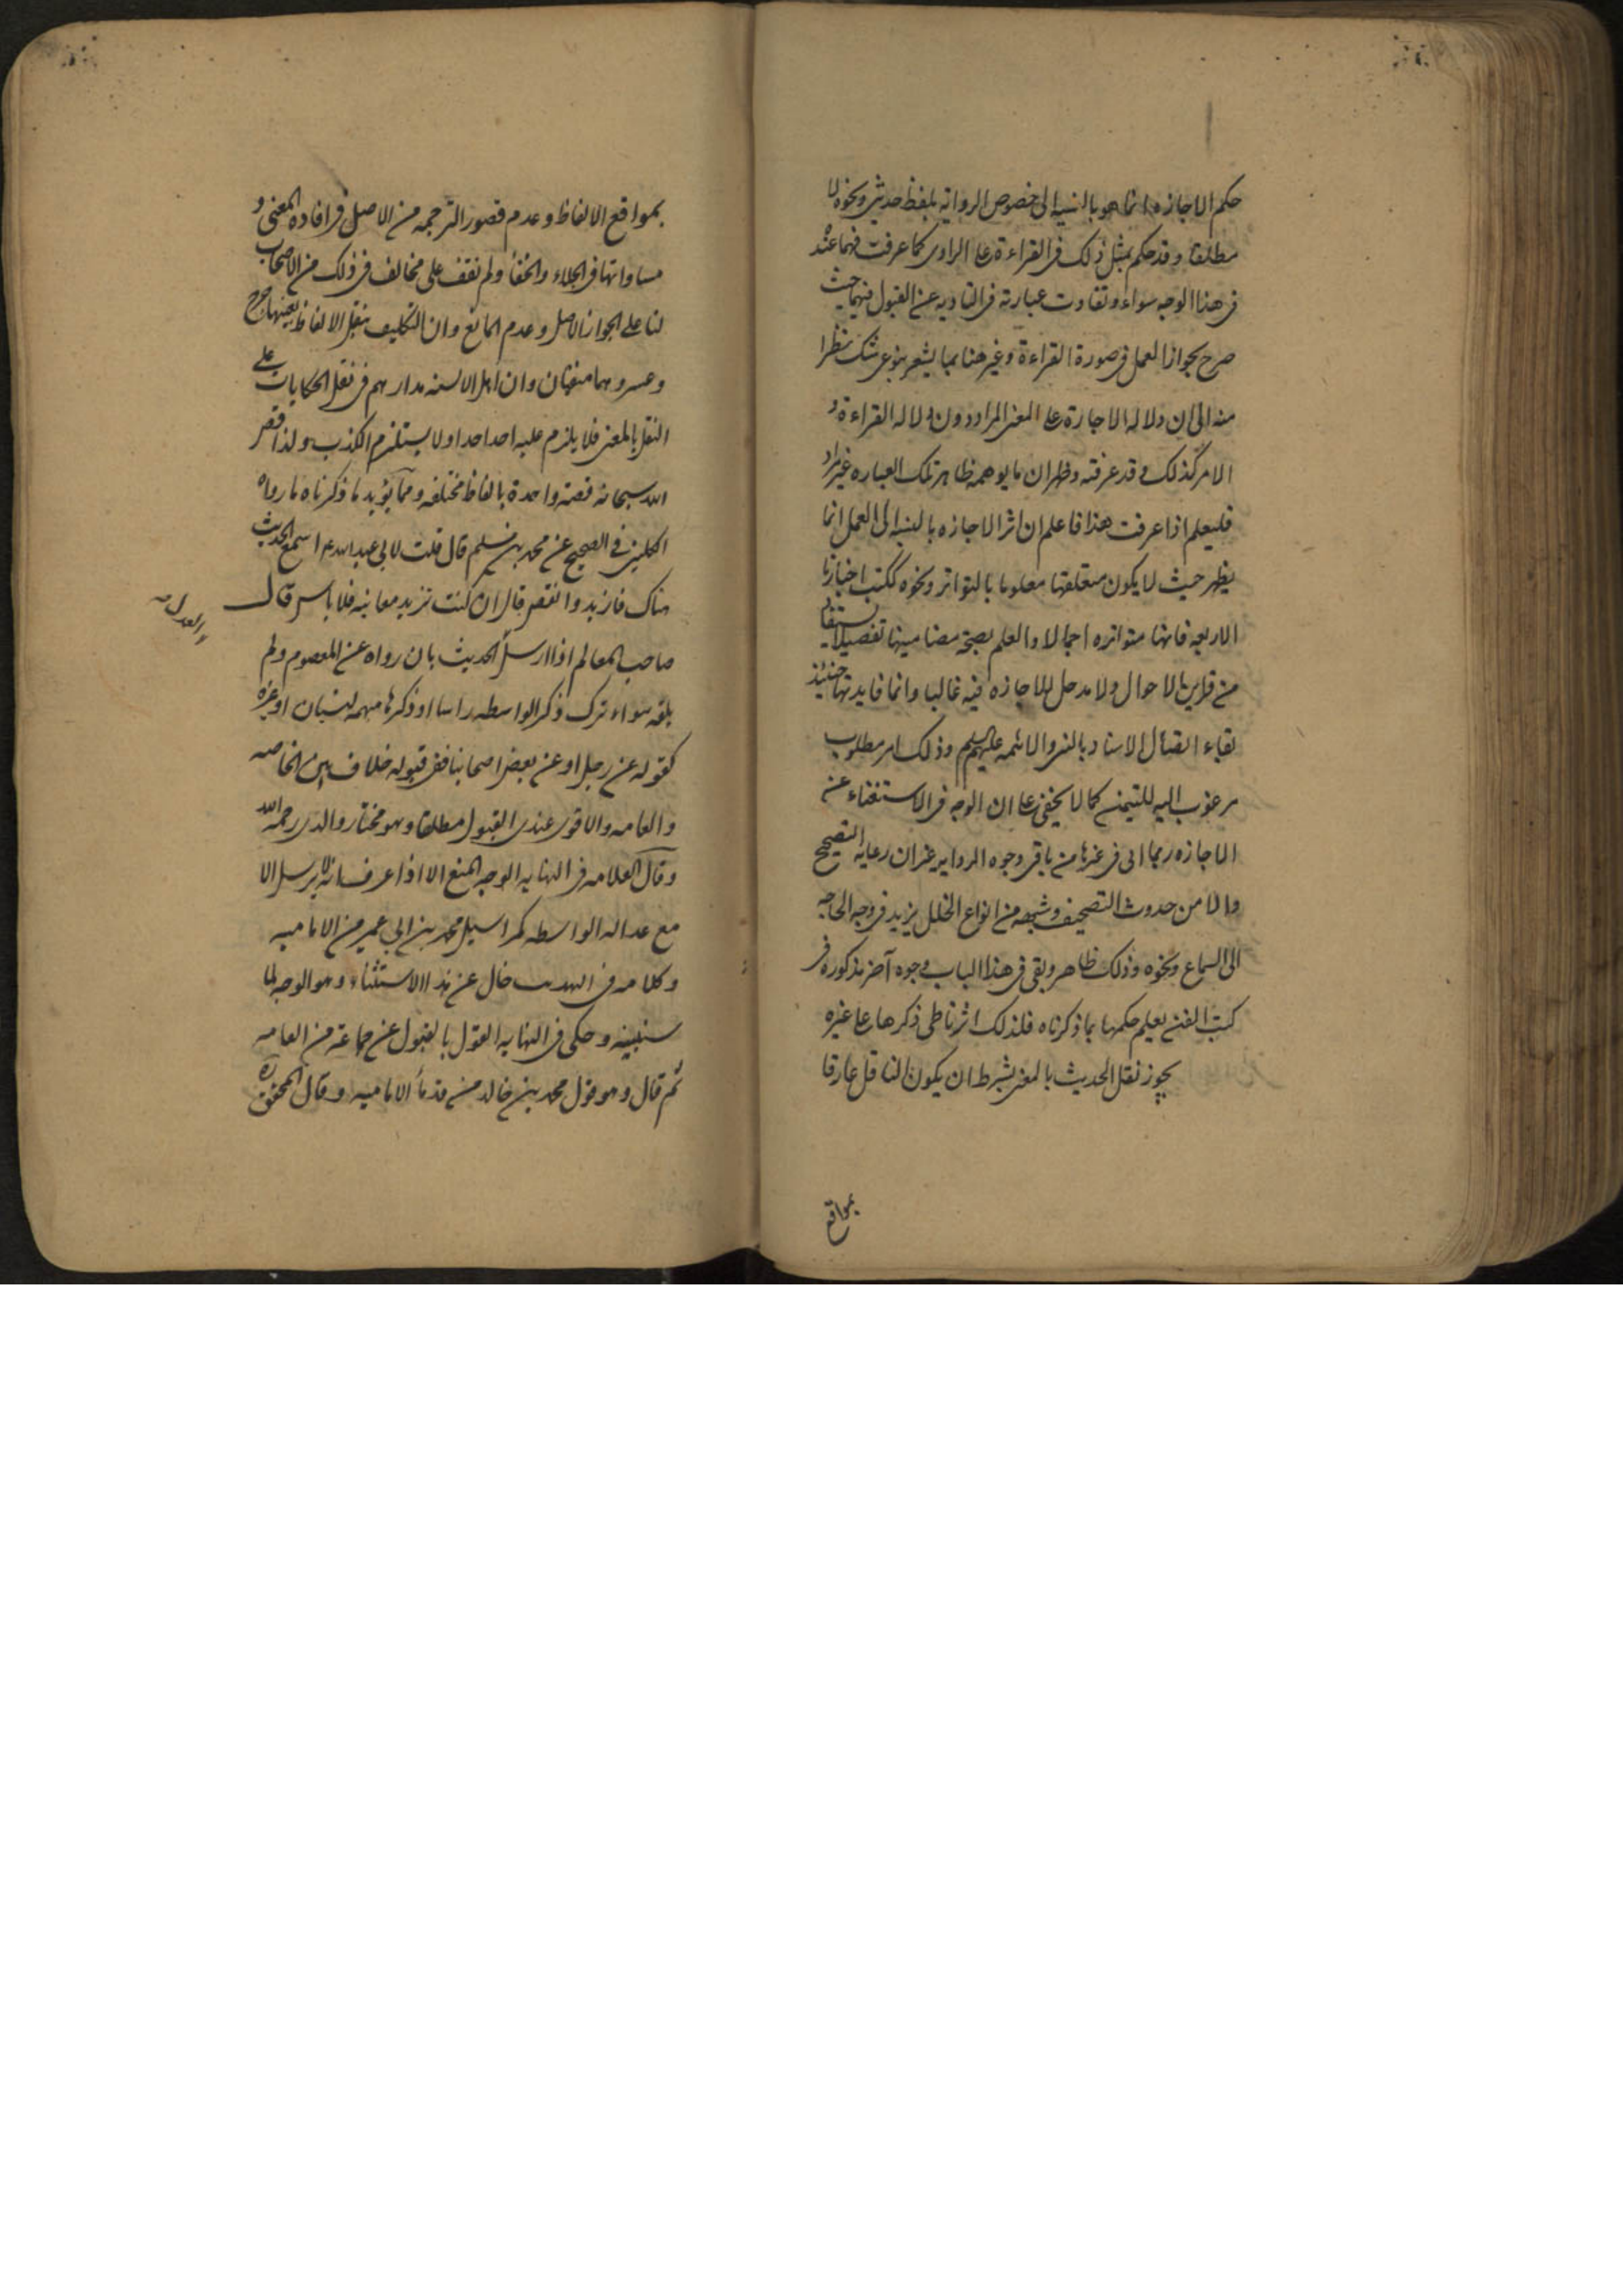 حكم الاجازه انما هو بالنسبه الى خصوص الروايه بلفظ حدثنى ونحوه لا
مطلقا وقد حكم بمثل ذلك فى القراءة على الراوى كما عرفت فهما عنده
فى هذا الوجه سواء وتفاوت عبارته فى التاديه عن القبول فيهما حيث
صرح بجواز العمل فى صورة القراءة وغير هنا بما يشعر بنوع شك نظرا
منه الى ان دلاله الاجازة على المعنى المراد دون دلاله القراءة و
الامر كذلك وقد عرفته وظهر ان ما يوهمه ظاهر تلك العباره غير مراد
فليعلم اذا عرفت هذا فاعلم ان اثر الاجازه بالنسبه الى العمل انما
يظهر حيث لا يكون متعلقها معلوما بالتواتر ونحوه ككتب اخبارنا
الاربعه فانها متواتره اجمالا والعلم بصحة مضامينها تفصيلا يستفاد
من قراين الاحوال ولا مدخل للاجازه فيه غالبا وانما فايدتها حينئذ
بقاء اتصال الاسناد بالنبى والائمه عليهم السلم وذلك امر مطلوب
مرغوب اليه للتيمن كما لا يخفى على ان الوجه فى الاستغناء عن
الاجازه ربما اتى فى غيرها من باقى وجوه الروايه غير ان رعايه التصحيح
والامن من حدوث التصحيف وشبهه من انواع الخلل يزيد فى وجه الحاجه
الى السماع ونحوه وذلك ظاهر وبقى فى هذا الباب وجوه آخر مذكورة فى
كتب الفن يعلم حكمها بما ذكرناه فلذلك اثرنا طى ذكرها على غيره
يجوز نقل الحديث بالمعنى بشرط ان يكون الناقل عارفا
بمواقع
بمواقع الالفاظ وعدم قصور الترجمه من الاصل فى افاده المعنى و
مساواتها فى الجلاء والخفأ ولم نقف على مخالف فى ذلك من الاصحاب
لنا على الجواز الاصل وعدم المانع وان التكليف بنقل الالفاظ بعينها حرج
وعسر وهما منفيان وان اهل الالسنه مدارهم فى نقل الحكايات على
النقل بالمعنى فلا يلزم عليه احد احدا ولا يستلزم الكذب ولذا قص
الله سبحانه قصة واحدة بالفاظ مختلفه ومما يؤيد ما ذكرناه ما رواه
الكلينى فى الصحيح عن محمد بن مسلم قال قلت لابى عبد الله ع اسمع الحديث
منك فازيد وانقص قال ان كنت تريد معانيه فلا باس قال
صاحب المعالم اذا ارسل الحديث بان رواه عن المعصوم ولم
يلقه سواء ترك ذكر الواسطه راسا او ذكرها مبهمه لنسيان او غيره
كقوله عن رجل او عن بعض اصحابنا ففى قبوله خلاف بين الخاصه
والعامه والاقوى عندى القبول مطلقا وهو مختار والدى رحمه الله
وقال العلامه فى النهايه الوجه المنع الا اذا عرف انه لا يرسل الا
مع عداله الواسطه كمراسيل محمد بن ابى عمير من الاماميه
وكلامه فى التهذيب خال عن هذا الاستثناء وهو الوجه لما
سنبينه وحكى فى النهايه القول بالقبول عن جماعة من العامه
ثم قال وهو قول محمد بن خالد من قدمأ الاماميه وقال المحقق ره